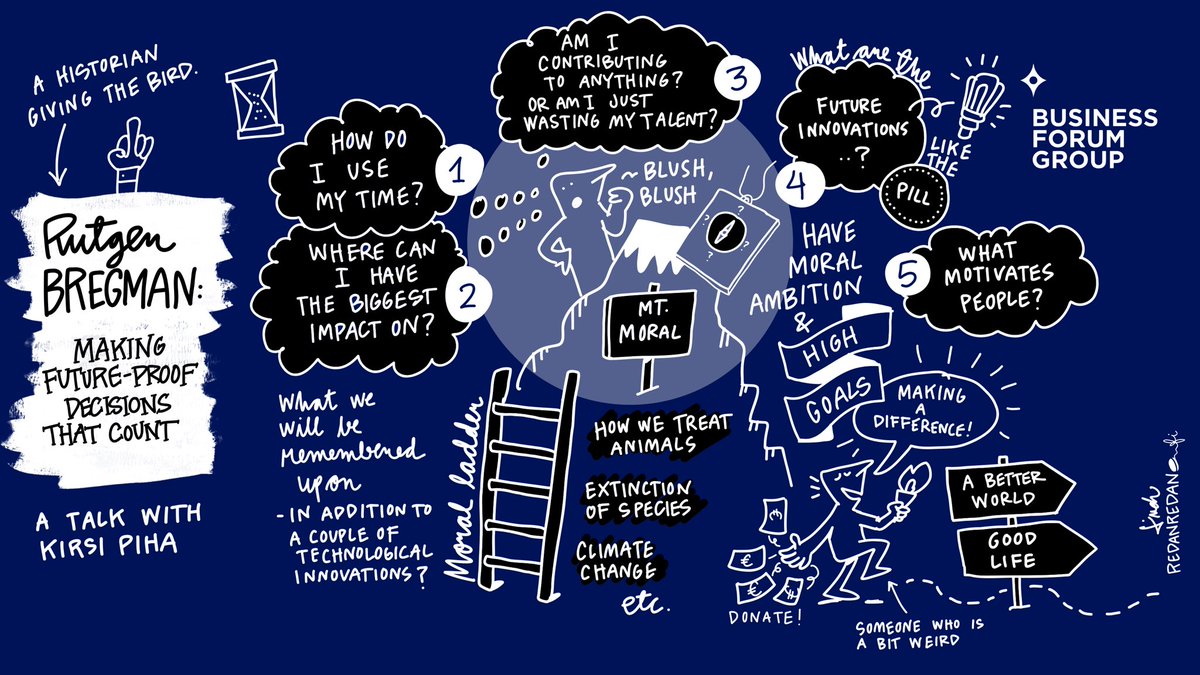 A HISTORIAN
GIVING THE BIRD.
Rutgen
BREGMAN:
MAKING
FUTURE-PROOF
DECISIONS
THAT COUNT
A TALK WITH
KIRSI PIHA
HOW DO
I USE
MY TIME?
1
WHERE CAN
I HAVE
THE BIGGEST
IMPACT ON?
2
What we
will be
remembered
upon
- IN ADDITION TO
A COUPLE OF
TECHNOLOGICAL
INNOVATIONS?
AM I
CONTRIBUTING
TO ANYTHING?
OR AM I JUST
WASTING MY TALENT?
3
~ BLUSH,
BLUSH
? ?
? ?
MT.
MORAL
Moral ladder
HOW WE TREAT
ANIMALS
EXTINCTION
OF SPECIES
CLIMATE
CHANGE
etc.
What are the
FUTURE
INNOVATIONS
..?
4
LIKE
THE
PILL
BUSINESS
FORUM
GROUP
HAVE
MORAL
AMBITION
&
HIGH
GOALS
5
WHAT
MOTIVATES
PEOPLE?
MAKING
A
DIFFERENCE!
€
€
€
€
DONATE!
SOMEONE WHO IS
A BIT WEIRD
A BETTER
WORLD
GOOD
LIFE